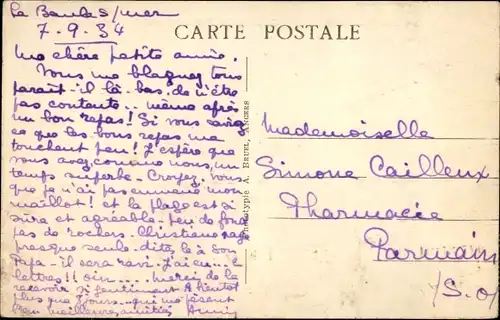 La Baule s/mer
7.9.34
CARTE POSTALE
Ma chère petite amie,
Vous me blaguez tous
paraît-il là-bas de n'être
pas contente.. même après
un bon repas! Si vous saviez
ce que les bons repas me
touchent peu! J'espère que
vous avez comme nous, un
temps superbe. Croyez-vous
que je n'ai pas emmené mon
maillot! et la plage est si
sûre et agréable peu de fond
pas de rochers. Christiane nage
presque seule. dites le à son
Papa - il sera ravi. J'ai eu 2
lettres!! merci de les
recevoir si A bientôt
plus que jours qui me pèsent
Bien meilleures amitiés
Phototypie A. BRUEL, ANGERS
Mademoiselle
Simone Cailleux
Pharmacie
Parmain
/S.O/